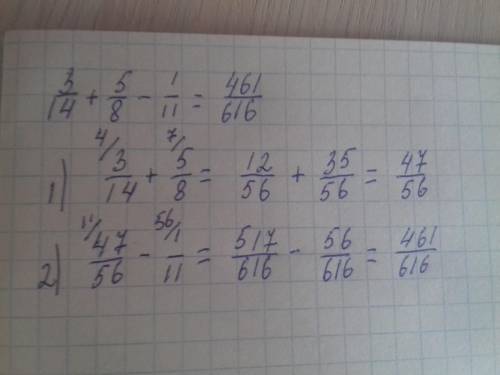 3/14 + 5/8 - 1/11 = 461/616
4/ 7/
1) 3/14 + 5/8 = 12/56 + 35/56 = 47/56
11/ 56/
2) 47/56 - 1/11 = 517/616 - 56/616 = 461/616